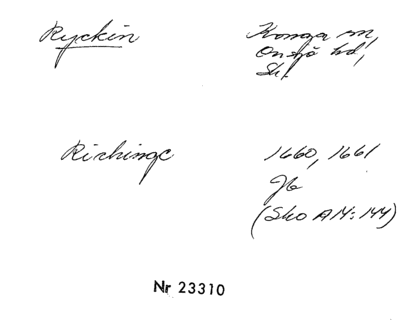 Ryckin Konga sn,
Onsjö hd,
Sk.
Rishinge 1660, 1661
Jb
(Sko AM: 144)
Nr 23310